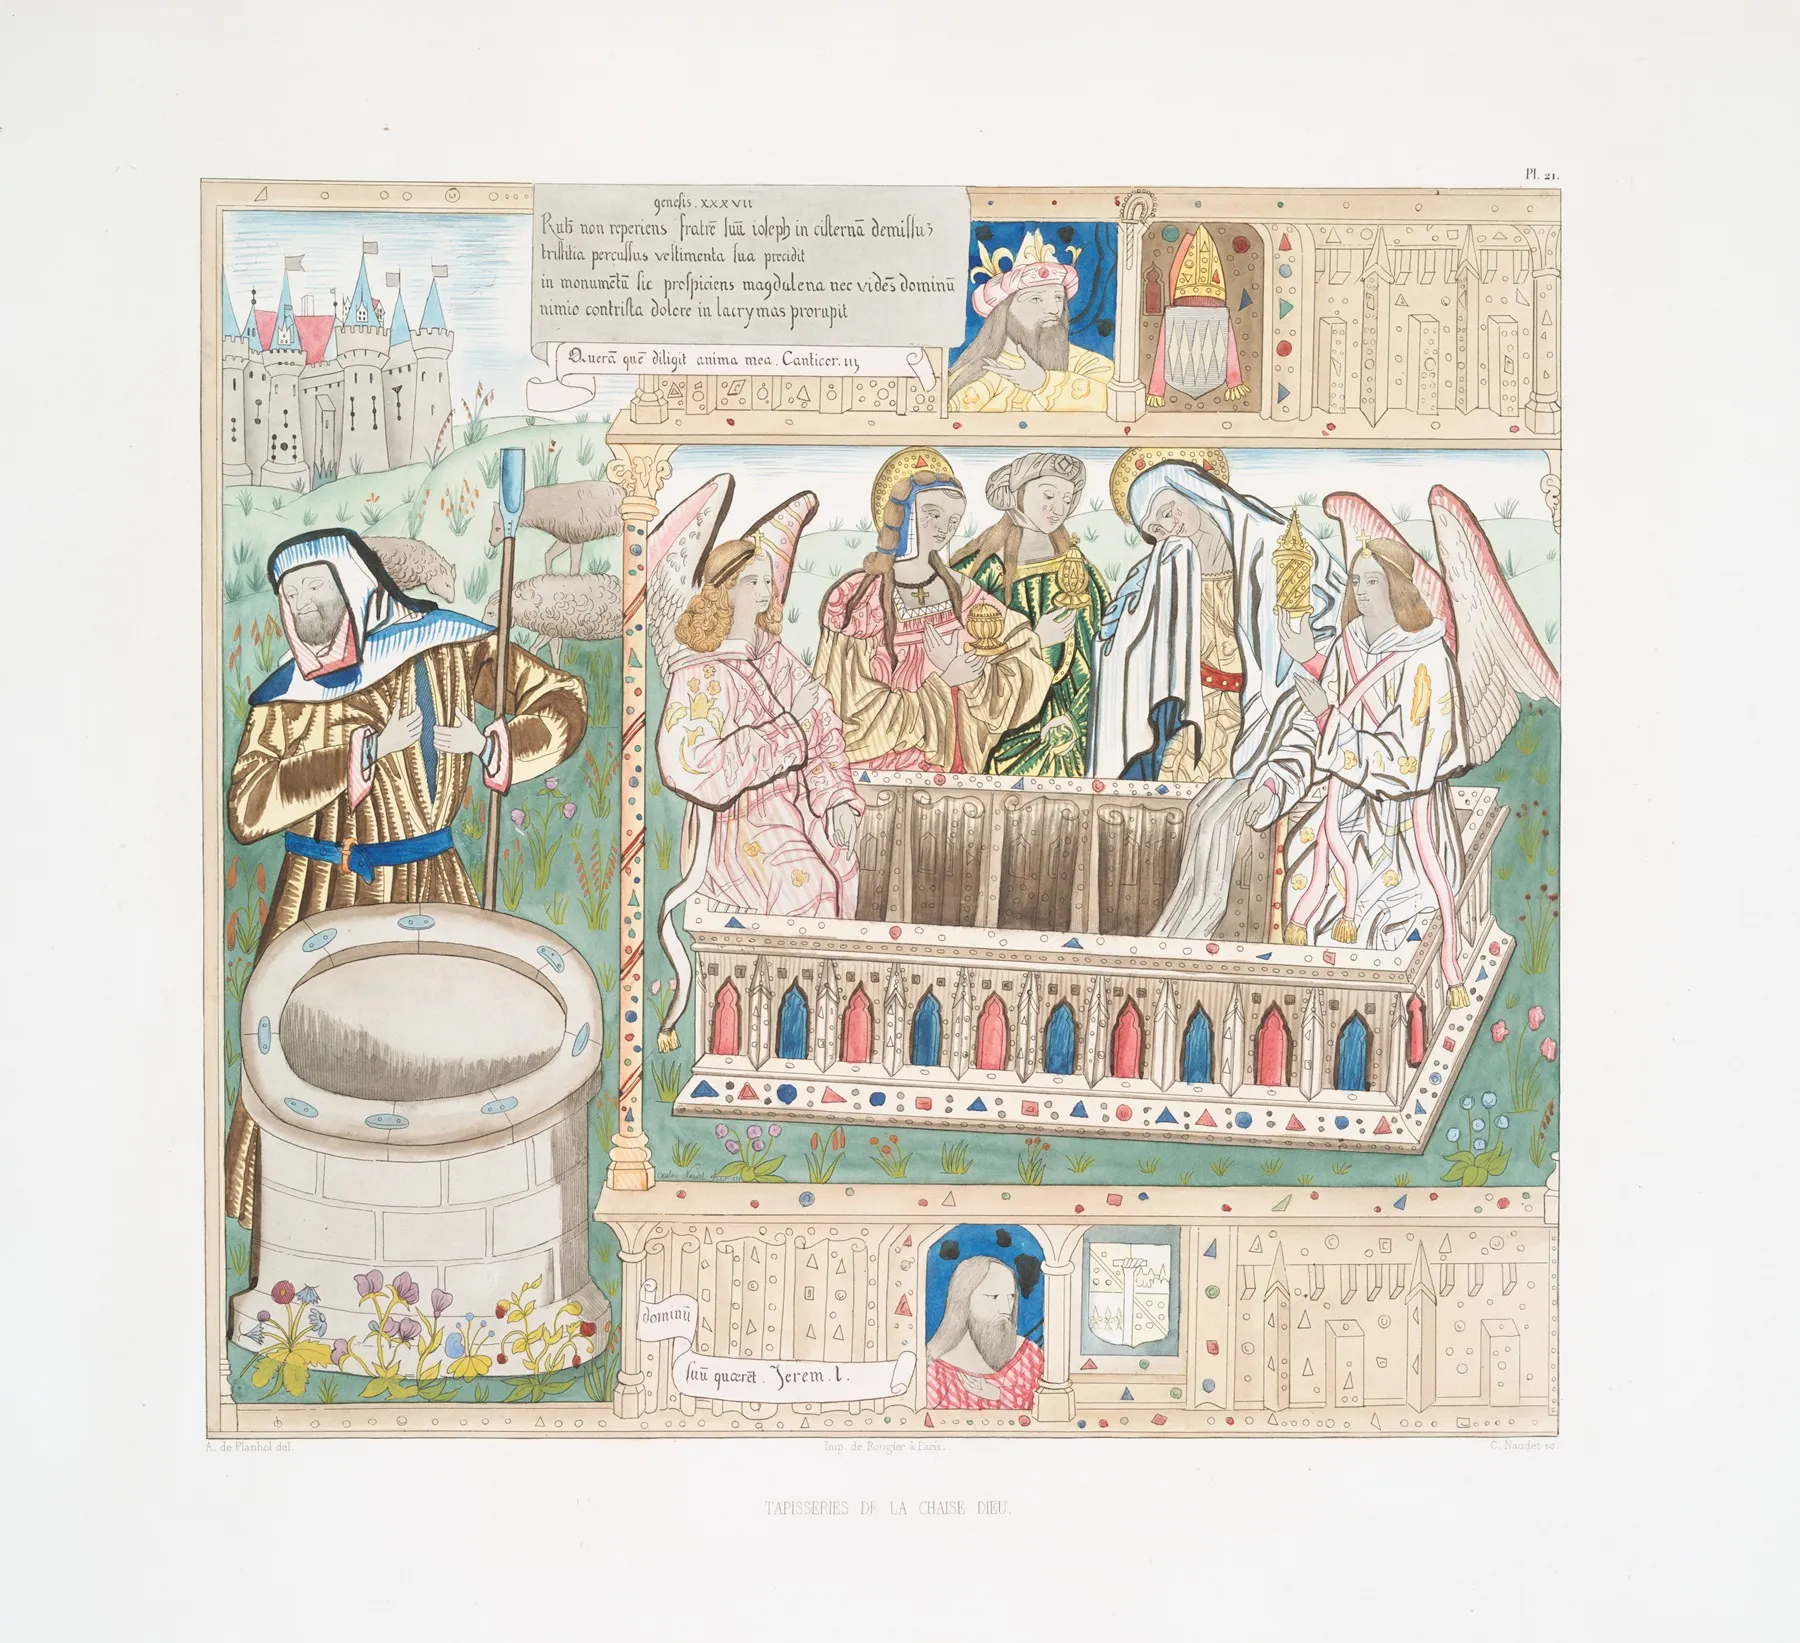 Pl. 21.
genesis. xxxvii
Rubē non reperiens fratrē suū ioseph in cisternā demissuʒ
tristitia percussus vestimenta sua precidit
in monumētū sic prospiciens magdalena nec vidēs dominū
nimio contrista dolore in lacrymas prorupit
Querā quē diligit anima mea. Canticor. iij
dominū
suū quæret. Jerem. l.
A. de Planhol del.
Imp. de Rougier à Paris.
C. Naudet sc.
TAPISSERIES DE LA CHAISE DIEU.